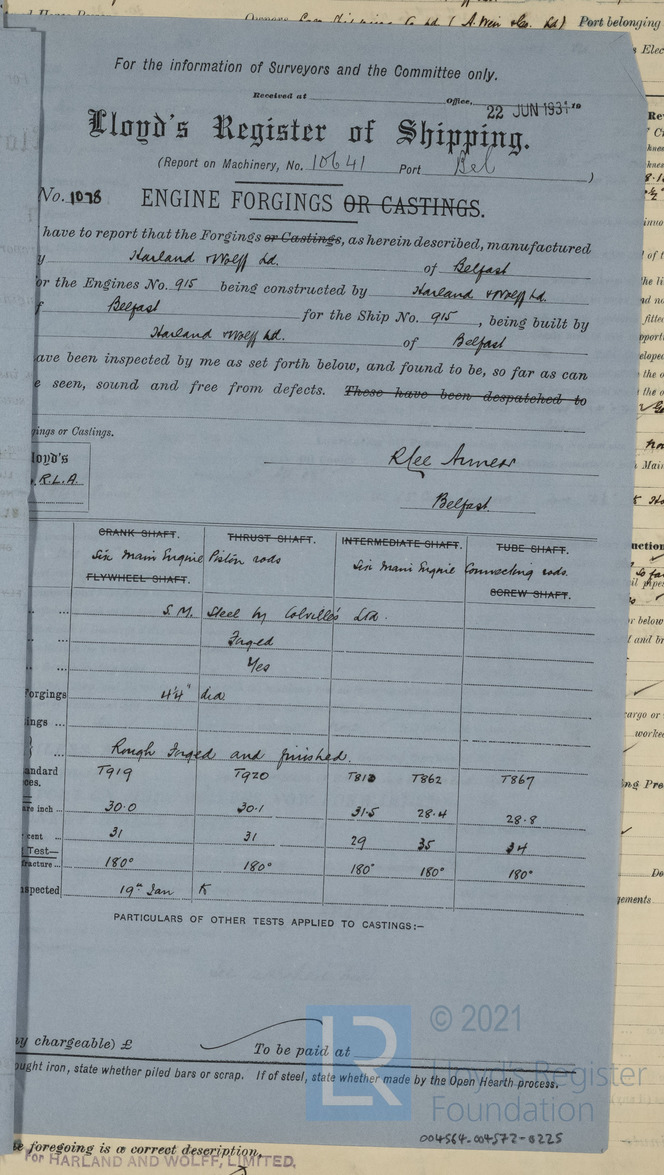 Owners
Ld)
Port belonging
For the information of Surveyors and the Committee only.
Received at Office, 22 JUN 1931 19
Lloyd's Register of Shipping.
(Report on Machinery, No. 10641 Port Bel )
No. 1078 ENGINE FORGINGS OR CASTINGS.
have to report that the Forgings or Castings, as herein described, manufactured
y Harland & Wolff Ld. of Belfast
or the Engines No. 915 being constructed by Harland & Wolff Ld.
f Belfast for the Ship No. 915 , being built by
Harland & Wolff Ld. of Belfast
ave been inspected by me as set forth below, and found to be, so far as can
e seen, sound and free from defects. These have been despatched to
gings or Castings.
loyd's
R.L.A.
R Lee
Belfast.
CRANK SHAFT. THRUST SHAFT. INTERMEDIATE SHAFT. TUBE SHAFT.
Six Main Engine Piston rods Six Main Engine Connecting rods.
FLYWHEEL SHAFT. SCREW SHAFT.
S.M. Steel by Colville's Ltd.
Forged
Yes
Forgings dia
ings ...
Rough Forged and finished.
andard T919 T920 T862 T867
ces.
are inch ... 30.0 30.1 31.5 28.4 28.8
cent ... 31 31 29 35 34
Test—
fracture ... 180° 180° 180° 180° 180°
spected 19th Jan
PARTICULARS OF OTHER TESTS APPLIED TO CASTINGS:—
ny chargeable) £ To be paid at
ought iron, state whether piled bars or scrap. If of steel, state whether made by the Open Hearth process.
LR
© 2021
Lloyd's Register
Foundation
004564-004572-0225
e foregoing is a correct description,
For HARLAND AND WOLFF, LIMITED.